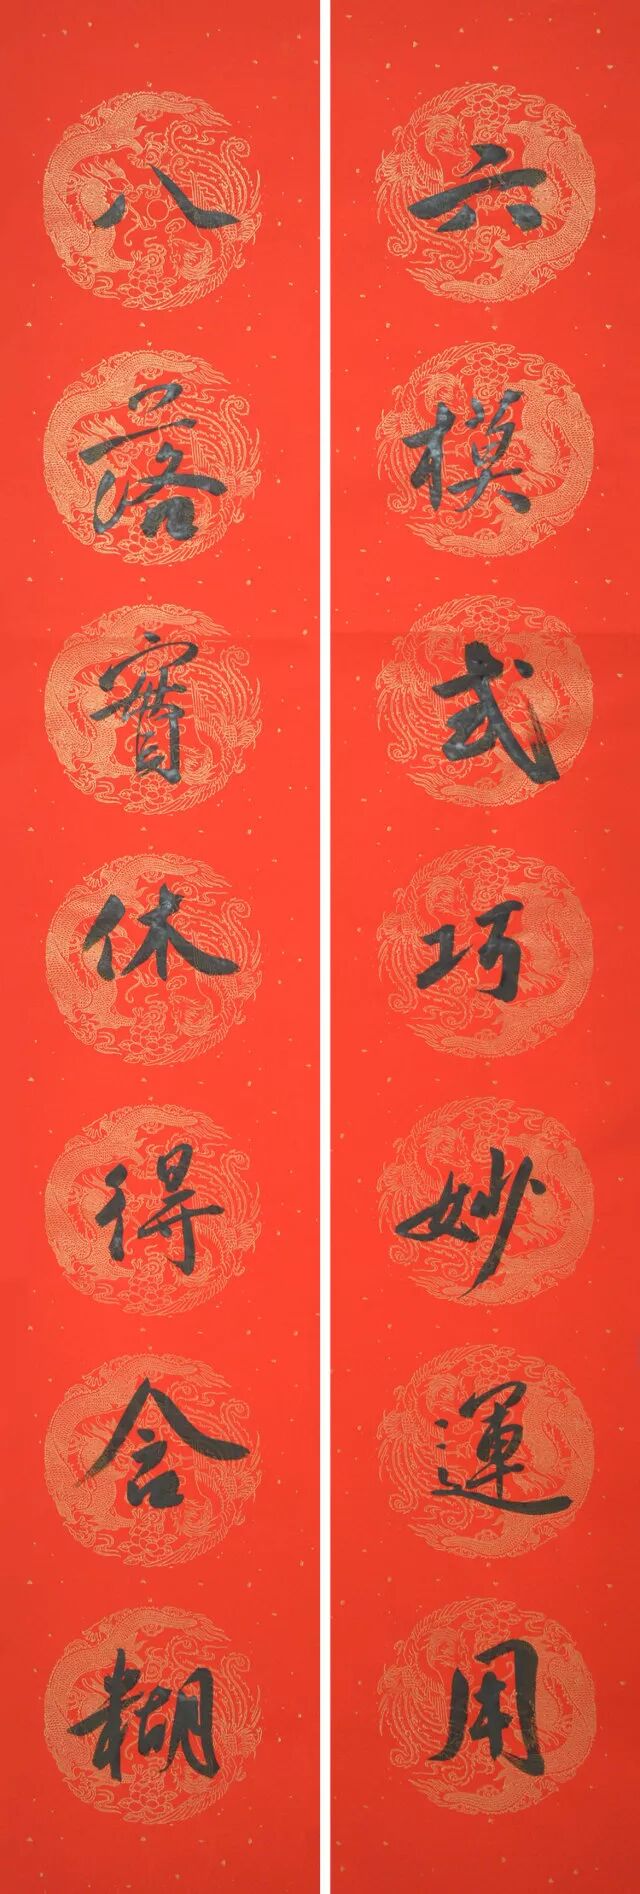 六模式巧妙運用
八落實休得含糊